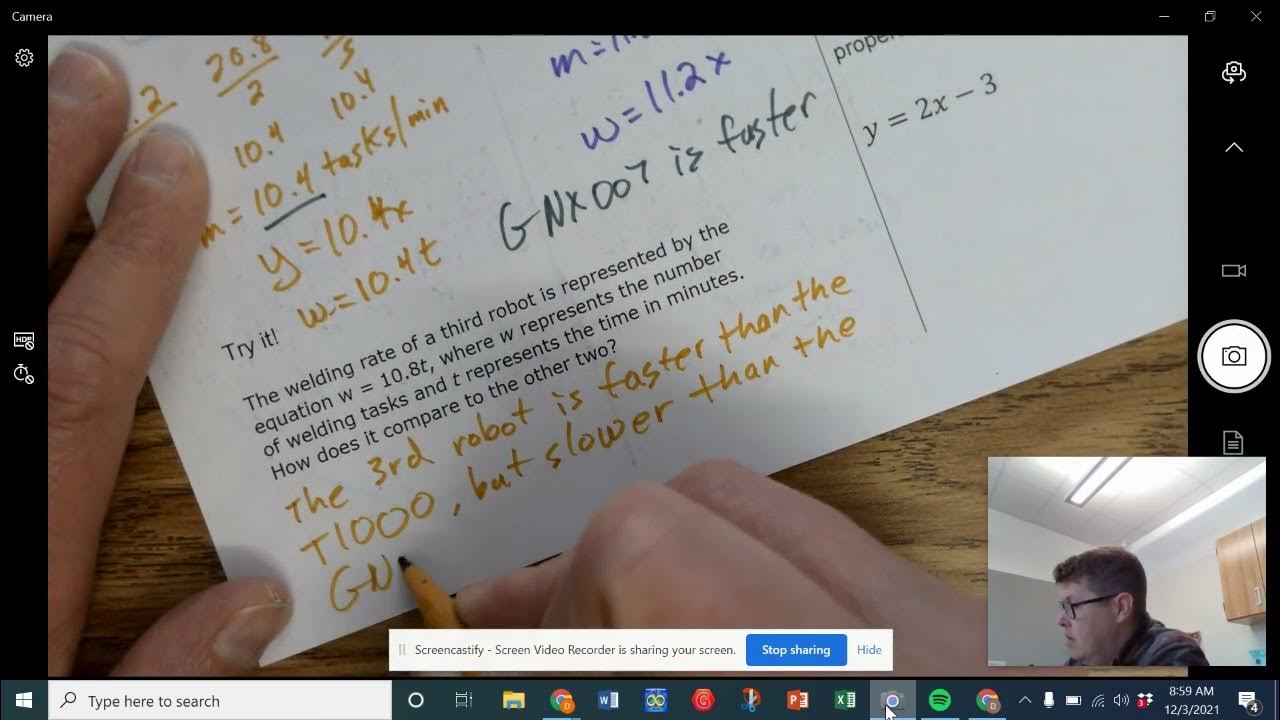 Camera
.2
20.8
2
5
10.4
10.4
m = 10.4 tasks/min
y = 10.4x
w = 10.4t
w = 11.2x
GNX007 is faster
y = 2x − 3
Try it!
The welding rate of a third robot is represented by the
equation w = 10.8t, where w represents the number
of welding tasks and t represents the time in minutes.
How does it compare to the other two?
The 3rd robot is faster than the
T1000, but slower than the
GN
Screencastify - Screen Video Recorder is sharing your screen.
Stop sharing
Hide
Type here to search
8:59 AM
12/3/2021